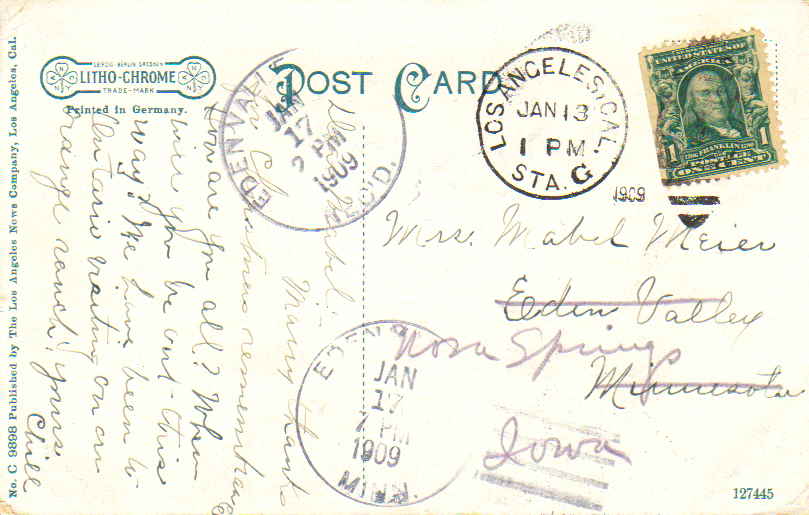 No. C 9898 Published by The Los Angeles News Company, Los Angeles, Cal.
LEIPZIG · BERLIN · DRESDEN
LITHO-CHROME
TRADE-MARK
Printed in Germany.
POST CARD
EDEN VALLEY
JAN
17
2 PM
1909
REC'D.
LOS ANGELES, CAL.
JAN 13
1 PM
STA. G
1909
UNITED STATES OF
AMERICA
FRANKLIN
POSTAGE
1 ONE CENT 1
Dear Mabel:
Many thanks
for Christmas remembrance
How are you all? When
will you be out this
way? We have been to
Ontario visiting on an
orange ranch. Yours
Mrs. Mabel Meier
Eden Valley
Minnesota
Nora Springs
Iowa
EDEN
JAN
17
7 PM
1909
MINN.
127445